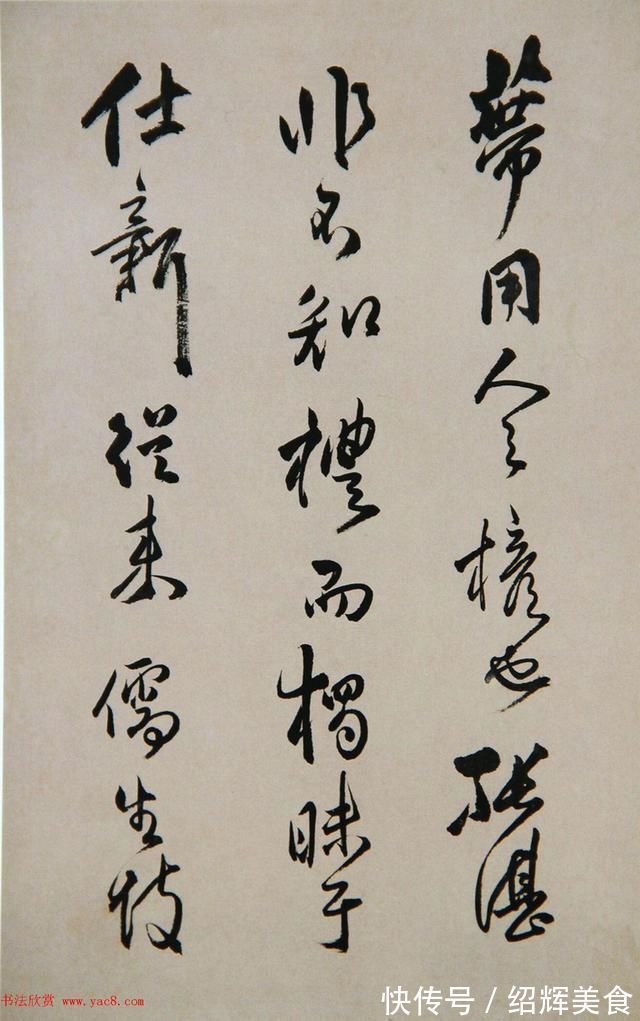 用人之也張湛
非不知禮而昧于
仕新從来儒生
书法欣赏 www.yac8.com
快传号/绍辉美食